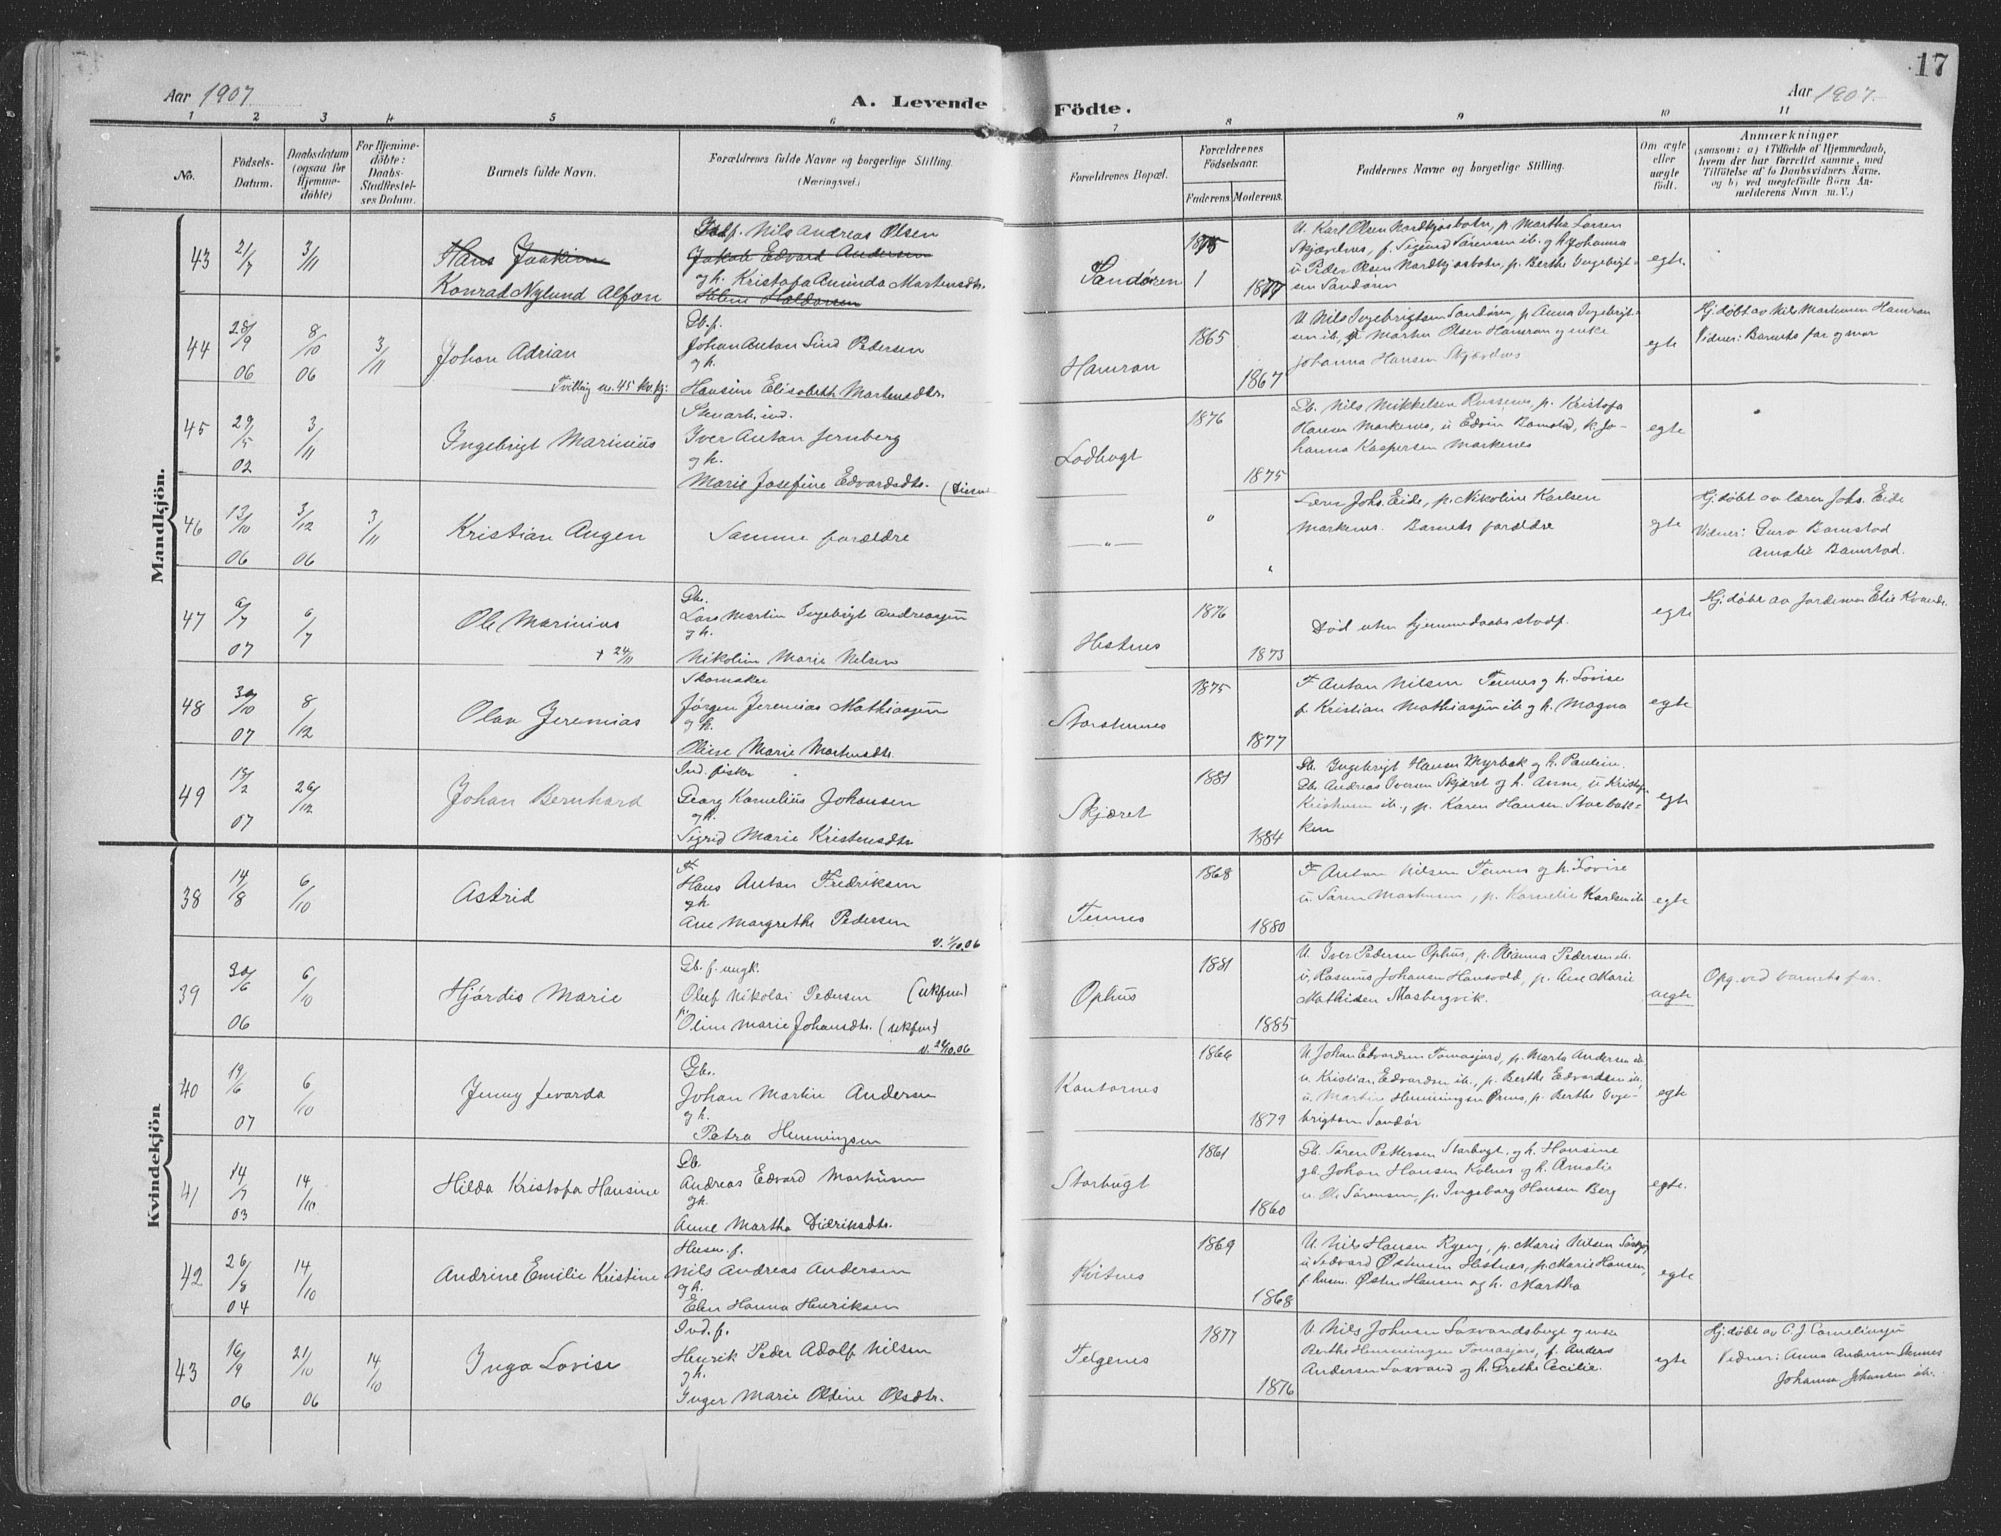 17
Aar 1907
A. Levende Födte.
Aar 1907.
1 2 3 4 5 6 7 8 9 10 11
No.
Födsels-
Datum.
Daabsdatum
(ogsaa for
Hjemme-
döbte)
For Hjemme-
döbte:
Daabs-
Stadfæstel-
ses Datum.
Barnets fulde Navn.
Forældrenes fulde Navne og borgerlige Stilling.
(Næringsvei.)
Forældrenes Bopæl.
Forældrenes
Födselsaar.
Faderens. Moderens.
Faddernes Navne og borgerlige Stilling.
Om ægte
eller
uægte
födt.
Anmærkninger
(saasom: a) i Tilfælde af Hjemmedaab,
hvem der har forrettet samme, med
Tilföielse af to Daabsvidners Navne,
og b) ved uægtefödte Börn An-
melderens Navn m. V.)
Mandkjön.
43
21/7
3/11
Hans Joakim
Konrad Nylund Alfon
Nils Andreas Olsen
Jakob Edvard Andersen
og h. Kristofa Aminda Martensdtr.
Helene Haldorsen
Sandören
1877
U. Karl Olsen Nordkjosbotn, p. Martha Larsen
Skjærdnes, f. Sigurd Sørensen ib. og h. Johanna
u Peder Olsen Nordkjosbotn, p. Berthe Ingebrigt-
sen Sandören
egte.
44
28/9
06
8/10
06
3/11
Johan Adrian
Tvilling m. 45 kv.kj.
Gb. f.
Johan Anton Lind Pedersen
og h.
Hansine Elisabeth Martensdtr.
Hamran
1865
1867
U. Nils Ingebrigtsen Sandören, p. Anna Ingebrigt-
sen ib, Martin Olsen Hamran og enke
Johanna Hansen Skjærdnes
egte
Hj.døbt av Nils Martinsen Hamran
Vidner: Barnets far og mor
45
29/5
02
3/11
Ingebrigt Marinius
Stenarb. ind.
Iver Anton Jernberg
og h.
Marie Josefine Edvardsdtr.
Lodbugt
1876
1875
Gb. Nils Mikkelsen Russenes, p. Kristofa
Hansen Markenes, u Edvin Bomstad, p. Jo-
hanna Kaspersen Markenes
egte
46
13/10
06
3/12
06
3/11
Kristian Augen
Samme forældre
— " —
"
"
Lærer Johs. Eide, p. Nikoline Karlsen
Markenes. Barnets forældre
egte
Hj.døbt av lærer Johs. Eide
Vidner: Guro Bomstad
Amalie Bomstad.
47
6/7
07
6/7
Ole Marinius
+ 24/11
Gbr.
Lars Martin Ingebrigt Andreassen
og h.
Nikoline Marie Nilsen
Hestnes
1876
1873
Død uten hjemmedaabsstadf.
egte
Hj.døbt av Jordemor Elie
48
30/10
07
8/12
Olav Jeremias
Skomaker
Jørgen Jeremias Mathiassen
og h.
Oline Marie Martensdtr.
Storstennes
1875
1877
F Anton Nilsen Tennes og h. Lovise
f. Kristian Mathiassen ib. og h. Magna
egte
49
13/2
07
26/12
Johan Bernhard
Ind. fisker
Georg Kornelius Johansen
og h.
Sigrid Marie Kristensdtr
Skjæret
1881
1884
Gb. Ingebrigt Hansen Myrbak og h. Pauline.
Gb. Andreas Iversen Skjæret og h. Anne, u Kristof
Kristensen ib., p. Karen Hansen Storbak-
ken
egte
Kvindekjön
38
14/8
6/10
Astrid
F
Hans Anton Fredriksen
og h.
Ane Margrethe Pedersen
Tennes
1868
1880
F Anton Nilsen Tennes og h. Lovise
u. Søren Markusen, p. Kornelie Karlsen ib
egte
39
30/6
06
6/10
Hjørdis Marie
v. 1/10.06
Gb. f. ungk.
Oluf Nikolai Pedersen (ukfm)
p. Oline Marie Johansdtr. (ukfm)
Ophus
1881
1885
U. Iver Pedersen Ophus, p. Pedersen ib.
u. Rasmus Johansen Hansvold, p. Ane Marie
Mathisen Mosbergvik.
uegte
Opg. ved barnets far.
40
19/6
07
6/10
Jenny Jevarda
v. 26/10.06
Gb.
Johan Martin Andersen
og h.
Petra Henningsen
Kantornes
1866
1879
U. Johan Edvardsen Tomasjord, p. Marta Andersen ib
u. Kristian Edvardsen ib., p. Berthe Edvardsen ib,
u Martin Henningsen Ørnes, p. Berthe Inge-
brigtsen Sandör
egte
41
14/7
03
14/10
Hilda Kristofa Hansine
Gb.
Andreas Edvard Markusen
og h.
Anne Martha Didriksdtr.
Storbugt
1861
1860
Gb. Søren Pettersen Storbugt og h. Hansine
gb. Johan Hansen Kolnes og h. Amalie
u. O. Sørensen, p. Ingeborg Hansen Berg
egte.
42
26/8
04
14/10
Andrine Emilie Kristine
Husm. f.
Nils Andreas Andersen
og h.
Elen Hanna Henriksen
Kvitnes
1869
1868
U. Nils Hansen Ryeng, p. Marie Nilsen
u Sedvard Østensen Hestnes, p. Marie Hansen,
f. husm. Østen Hansen og h. Martha
egte
43
16/9
06
21/10
06
14/10
Inga Lovise
Ind. f.
Henrik Peder Adolf Nilsen
og h.
Inger Marie Oldine Olsdtr.
Teigenes
1877
1876
U. Nils Johnsen Laxvandsbugt og enke
Berthe Henningsen Tomasjord, f. Anders
Andersen Laxvand og h. Grethe Cecilie.
egte
Hj.døbt av C. J. Cornelinsen
Vidner: Anna Andersen
Johanna Johansen ib.